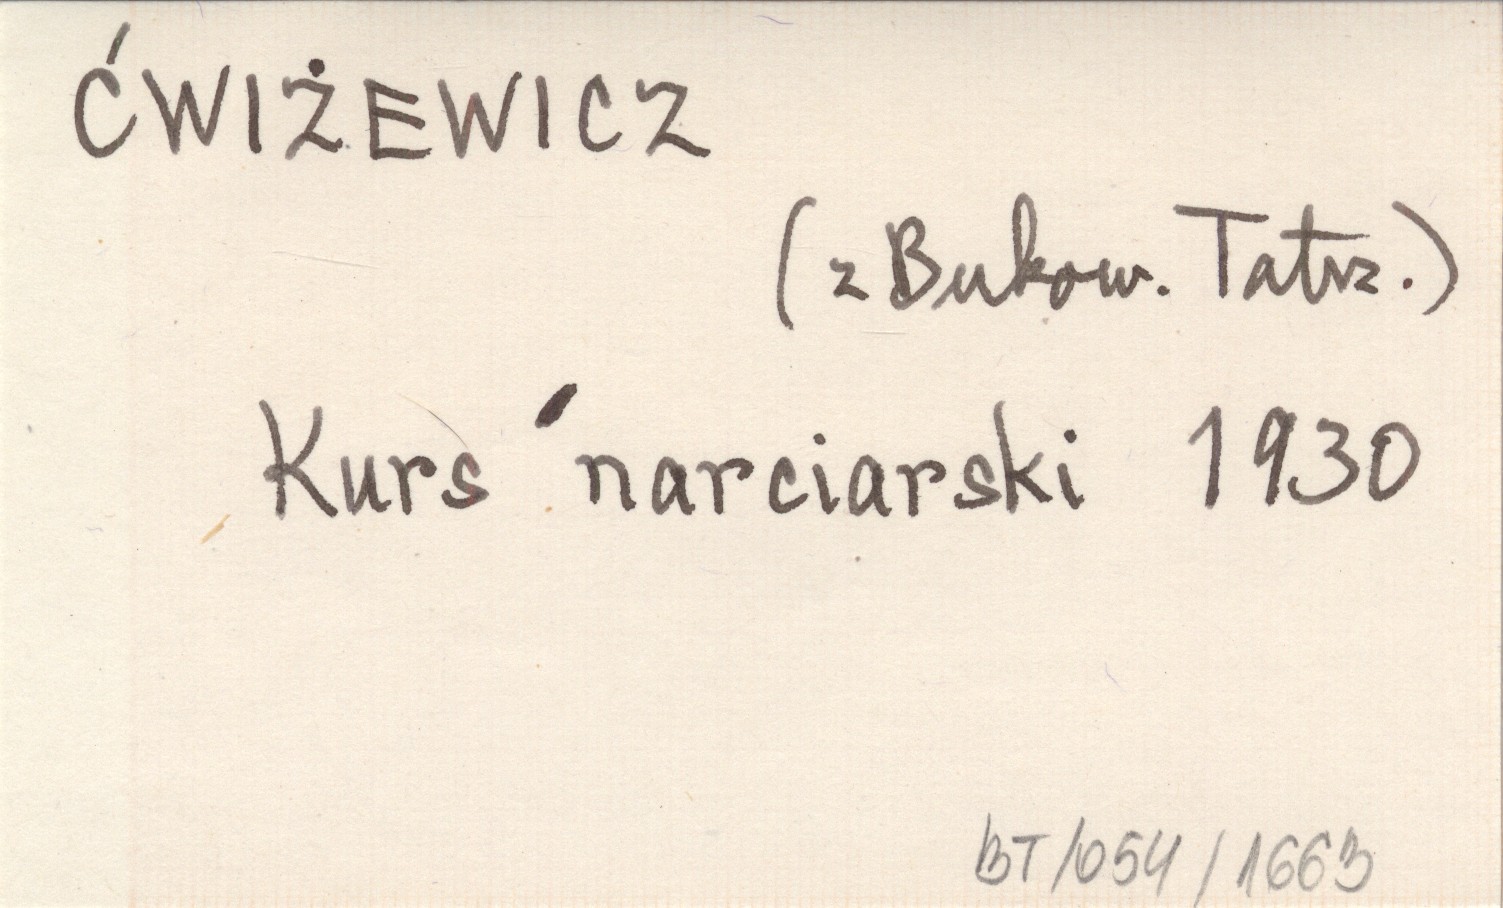 ĆWIŻEWICZ
(z Bukow. Tatrz.)
Kurs narciarski 1930
BT/054/1663